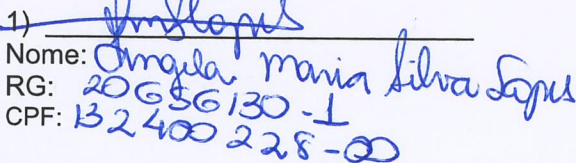 1)
Nome: Angela Maria Silva Lopes
RG: 20656130-1
CPF: 132400228-00